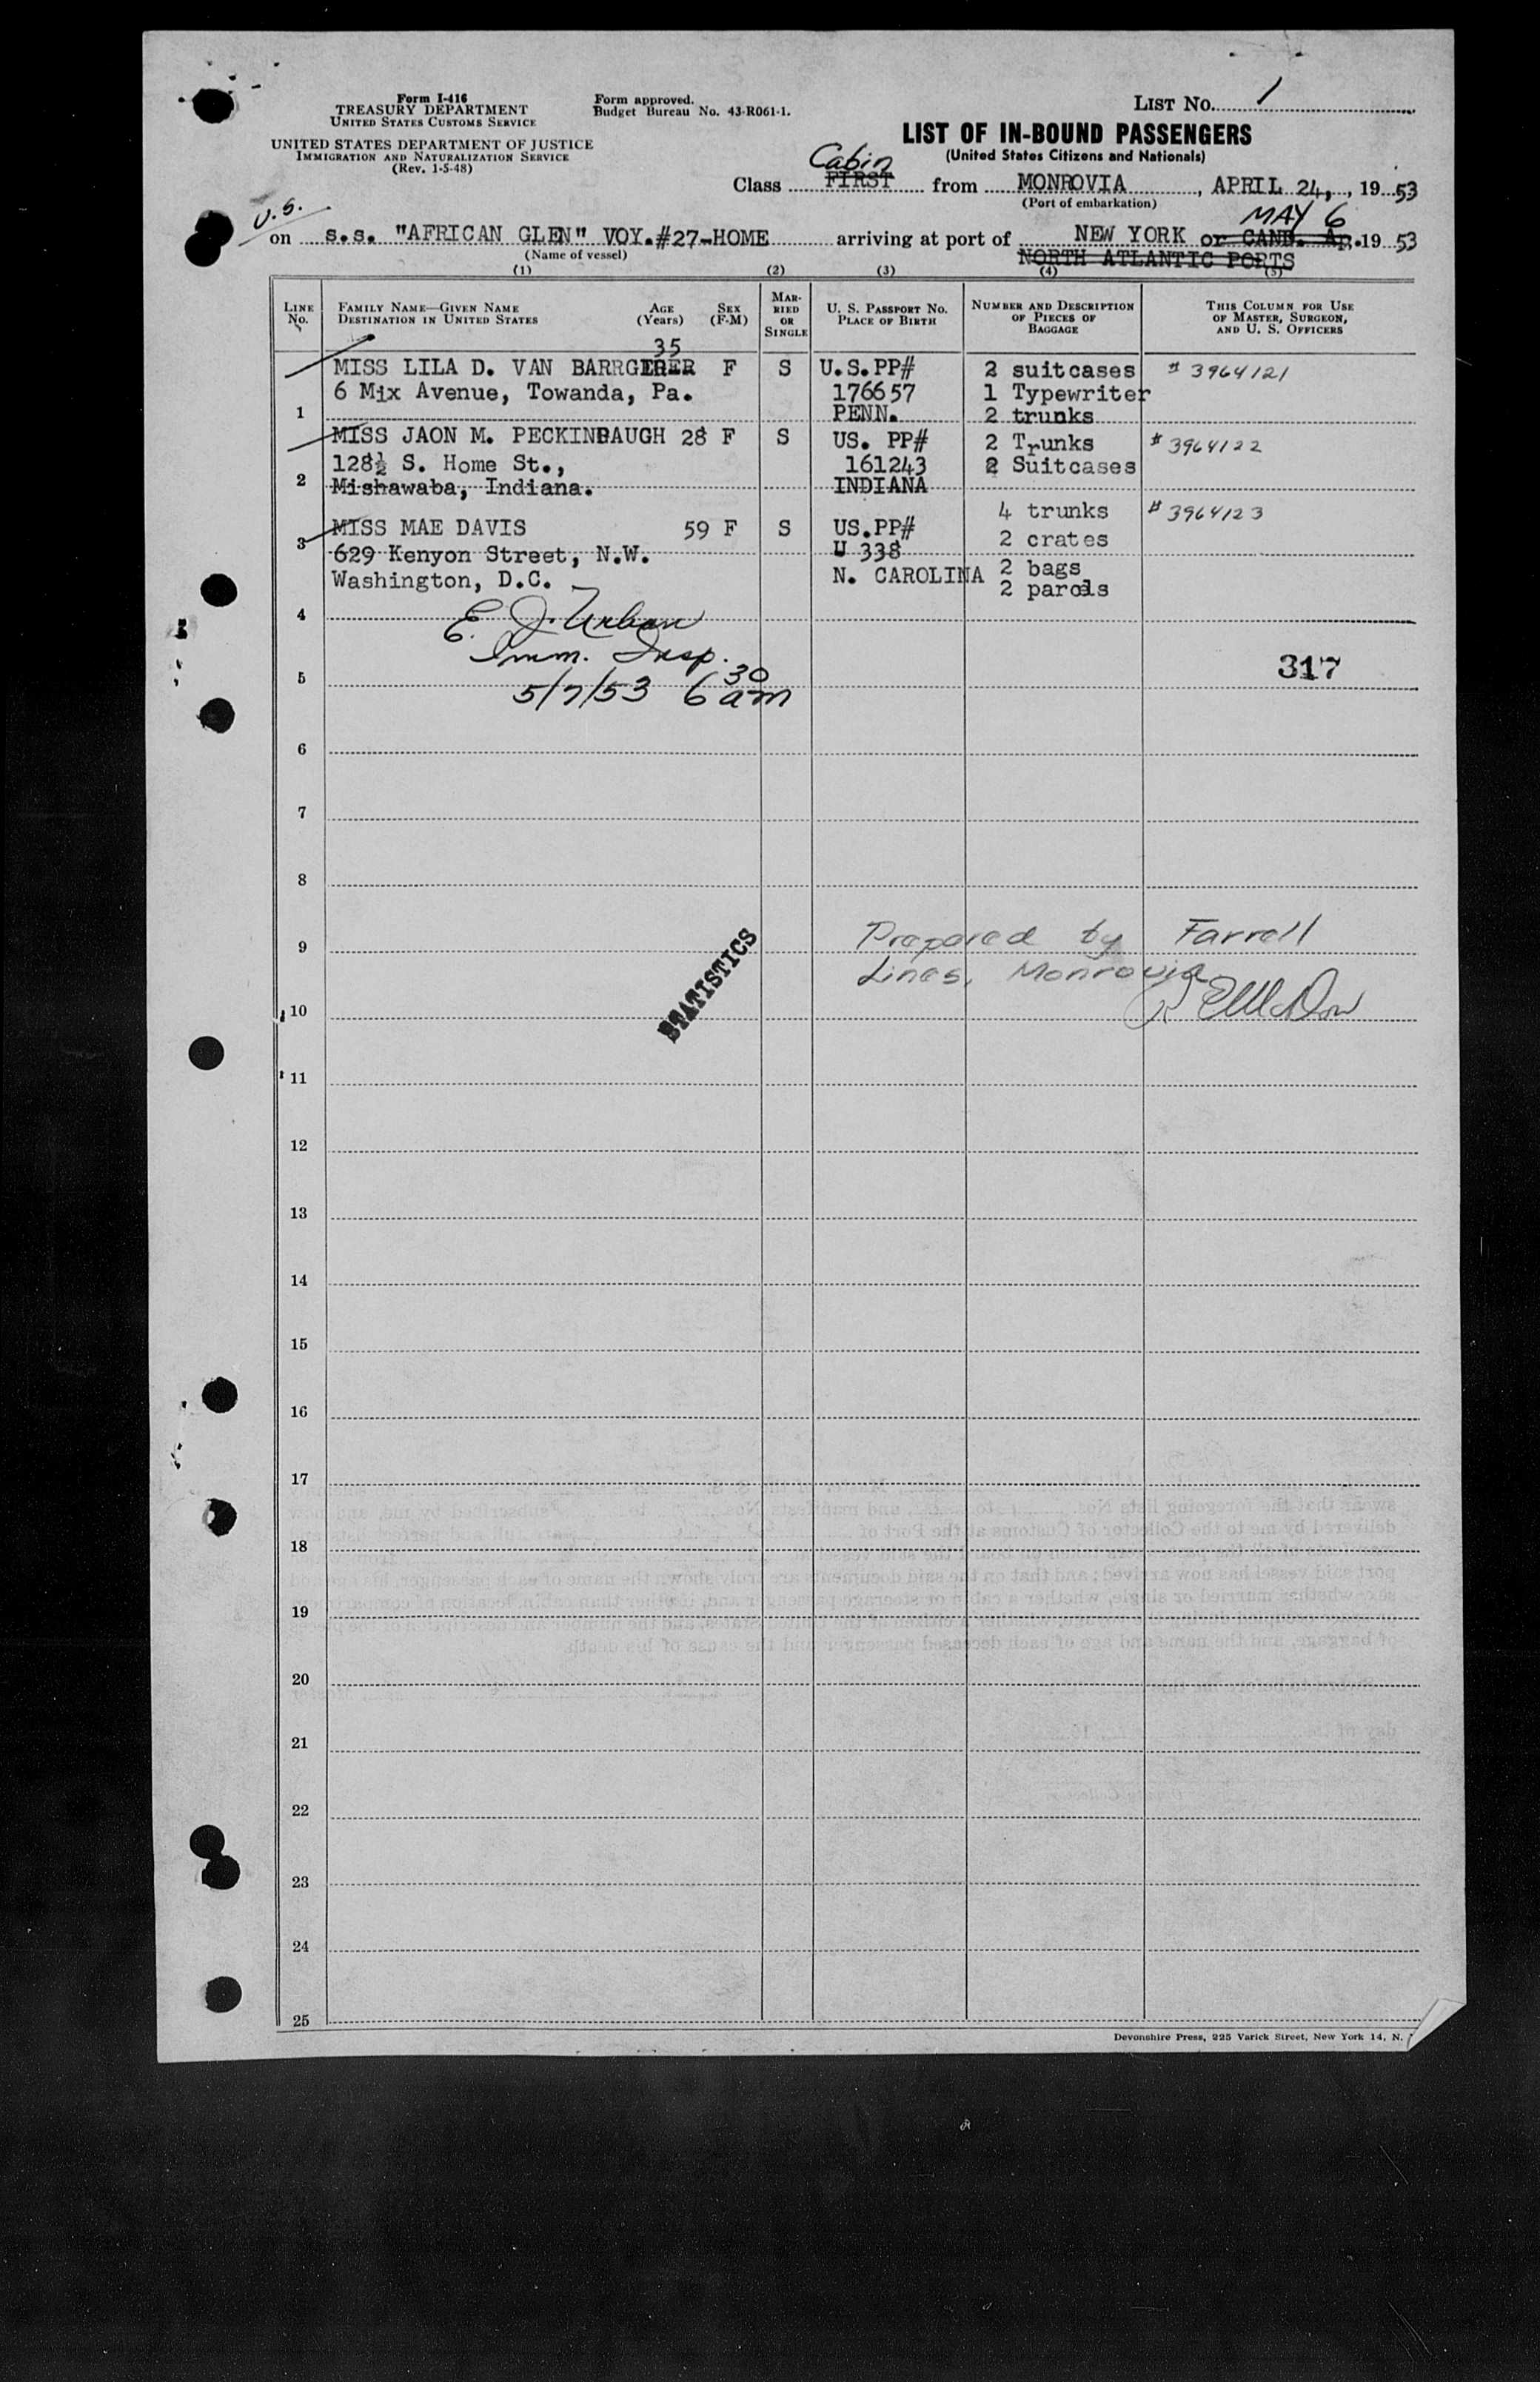 Form I-416
TREASURY DEPARTMENT
UNITED STATES CUSTOMS SERVICE
UNITED STATES DEPARTMENT OF JUSTICE
IMMIGRATION AND NATURALIZATION SERVICE
(Rev. 1-5-48)
Form approved.
Budget Bureau No. 43-R061-1.
LIST No. 1
LIST OF IN-BOUND PASSENGERS
(United States Citizens and Nationals)
Cabin
Class FIRST from MONROVIA, APRIL 24, 1953
(Port of embarkation)
U.S.
MAY 6
on S.S. "AFRICAN GLEN" VOY.#27-HOME arriving at port of NEW YORK or CAND. Ap. 1953
(Name of vessel)
NORTH ATLANTIC PORTS
(1) (2) (3) (4) (5)
LINE No.
FAMILY NAME—GIVEN NAME
DESTINATION IN UNITED STATES
AGE (Years)
SEX (F-M)
MARRIED OR SINGLE
U. S. PASSPORT No.
PLACE OF BIRTH
NUMBER AND DESCRIPTION OF PIECES OF BAGGAGE
THIS COLUMN FOR USE OF MASTER, SURGEON, AND U. S. OFFICERS
35
MISS LILA D. VAN F S U.S.PP# 2 suitcases # 3964121
6 Mix Avenue, Towanda, Pa. 176657 1 Typewriter
1 PENN. 2 trunks
MISS JAON M. PECKINBAUGH 28 F S US. PP# 2 Trunks # 3964122
128½ S. Home St., 161243 2 Suitcases
2 Mishawaba, Indiana. INDIANA
4 trunks # 3964123
3 MISS MAE DAVIS 59 F S US.PP# 2 crates
629 Kenyon Street, N.W. U 338
Washington, D.C. N. CAROLINA 2 bags
2 parcels
4 E. J. Urban
Imm. Insp.
5 5/7/53 6 30 am
317
6
7
8
9 Prepared by Farrell
Lines, Monrovia
STATISTICS
10
11
12
13
14
15
16
17
18
19
20
21
22
23
24
25
Devonshire Press, 225 Varick Street, New York 14, N.